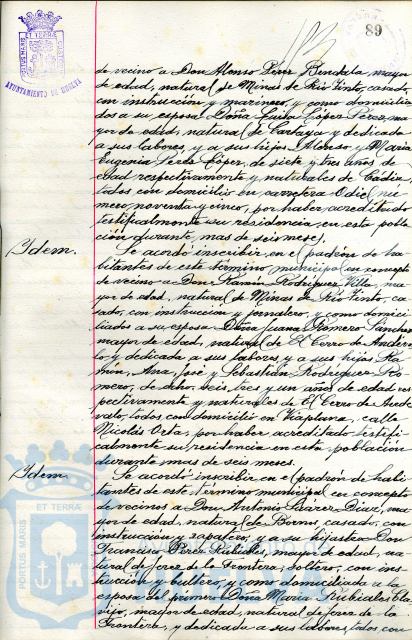 89
AYUNTAMIENTO DE HUELVA
de vecino a Don Alonso Pérez Bendala mayor
de edad, natural de Minas de Rio Tinto, casado,
con instruccion y marinero, y como domicilia
dos a su esposa Doña Luisa López Pérez, ma
yor de edad, natural de Cartaya y dedicada
a sus labores, y a sus hijos Alonso, y Maria
Eugenia Perez López, de siete y tres años de
edad respectivamente y naturales de Cadiz,
todos con domicilio en carretera Odiel nú
mero noventa y cinco, por haber acreditado
testificalmente su residencia en esta pobla
ción durante mas de seis meses.
Idem. Se acordó inscribir en el padrón de ha
bitantes de este termino municipal en concepto
de vecino a Don Ramón Rodríguez Villa, ma
yor de edad, natural de Minas de Rio Tinto, ca
sado, con instruccion y jornalero, y como domici
liados a su esposa Doña Juana Romero Sanchez
mayor de edad, natural de El Cerro de Andéva
lo y dedicada a sus labores y a sus hijos Ra
món, Ana, José y Sebastián Rodriguez Ro
mero, de ocho, seis, tres y un años de edad res
pectivamente y naturales de El Cerro de Ande
valo, todos con domicilio en Viaplana, calle
Nicolás Orta, por haber acreditado testifi
calmente su residencia en esta población
durante mas de seis meses.
Idem. Se acordó inscribir en el padrón de habi
tantes de este termino municipal en concepto
de vecinos a Don Antonio Suarez Diaz, ma
yor de edad, natural de Bornos, casado, con
instruccion y zapatero, y a su hijastro Don
Francisco Perez Rubiales, mayor de edad, na
tural de Jerez de la Frontera, soltero, con ins
trucción y bultero, y como domiciliada a la
esposa del primero Doña Maria Rubiales Cla
vijo, mayor de edad, natural de Jerez de la
Frontera, y dedicada a sus labores, todos con
PORTUS MARIS ET TERRÆ